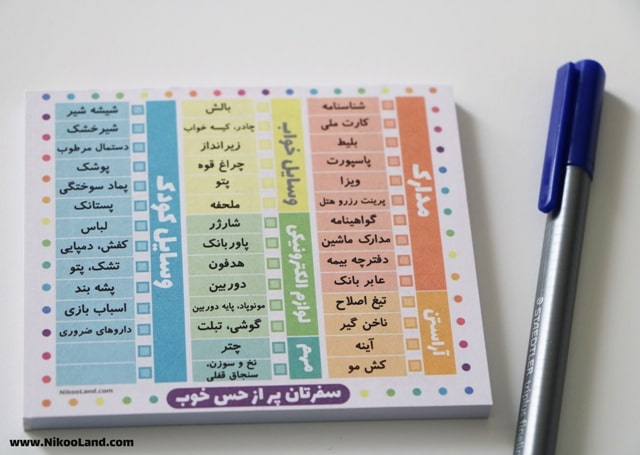 مدارک
شناسنامه
کارت ملی
بلیط
پاسپورت
ویزا
پرینت رزرو هتل
گواهینامه
مدارک ماشین
دفترچه بیمه
عابر بانک
آراستن
تیغ اصلاح
ناخن گیر
آینه
کش مو
وسایل خواب
بالش
چادر، کیسه خواب
زیرانداز
چراغ قوه
پتو
ملحفه
لوازم الکترونیکی
شارژر
پاوربانک
هدفون
دوربین
مونوپاد، پایه دوربین
گوشی، تبلت
مهم
چتر
نخ و سوزن،
سنجاق قفلی
وسایل کودک
شیشه شیر
شیرخشک
دستمال مرطوب
پوشک
پماد سوختگی
پستانک
لباس
کفش، دمپایی
تشک، پتو
پشه بند
اسباب بازی
داروهای ضروری
NikooLand.com
سفرتان پر از حس خوب
STAEDTLER
www.NikooLand.com